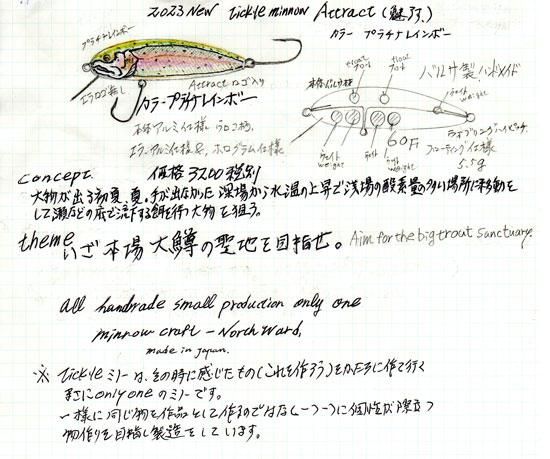 2023 New Tickle minnow Attract (魅了す)
カラー プラチナレインボー
プラチナレインボー
float フロート
float フロート
バルサ製ハンドメイド
本体バルサ材
ウェイト weight
エラロゴ無し
Attract ロゴ入り
カラープラチナレインボー
本体アルミ仕様 ウロコ柄、
エラ、アルミ仕様&、ホログラム仕様
ウェイト weight
ウェイト
weight
60F
フローティング仕様
5.5g
concept.
価格 3700 税別
大物が出る初夏、夏、手が出なかった深場から水温の上昇で浅場の酸素量の多い場所に移動を
して瀬などの底で流下する餌を待つ大物を狙う。
theme いざ本場大鱒の聖地を目指せ。 Aim for the big trout Sanctuary.
All handmade small production only one
minnow craft – North Ward,
made in Japan.
※ Tickleミノーは、その時に感じたもの(これを作ろう)をかたちに作て行く
まさに only one のミノーです。
一様に同じ物を作品として作るのではなく一つ一つに個性が際立つ
物作りを目指し製造をしています。